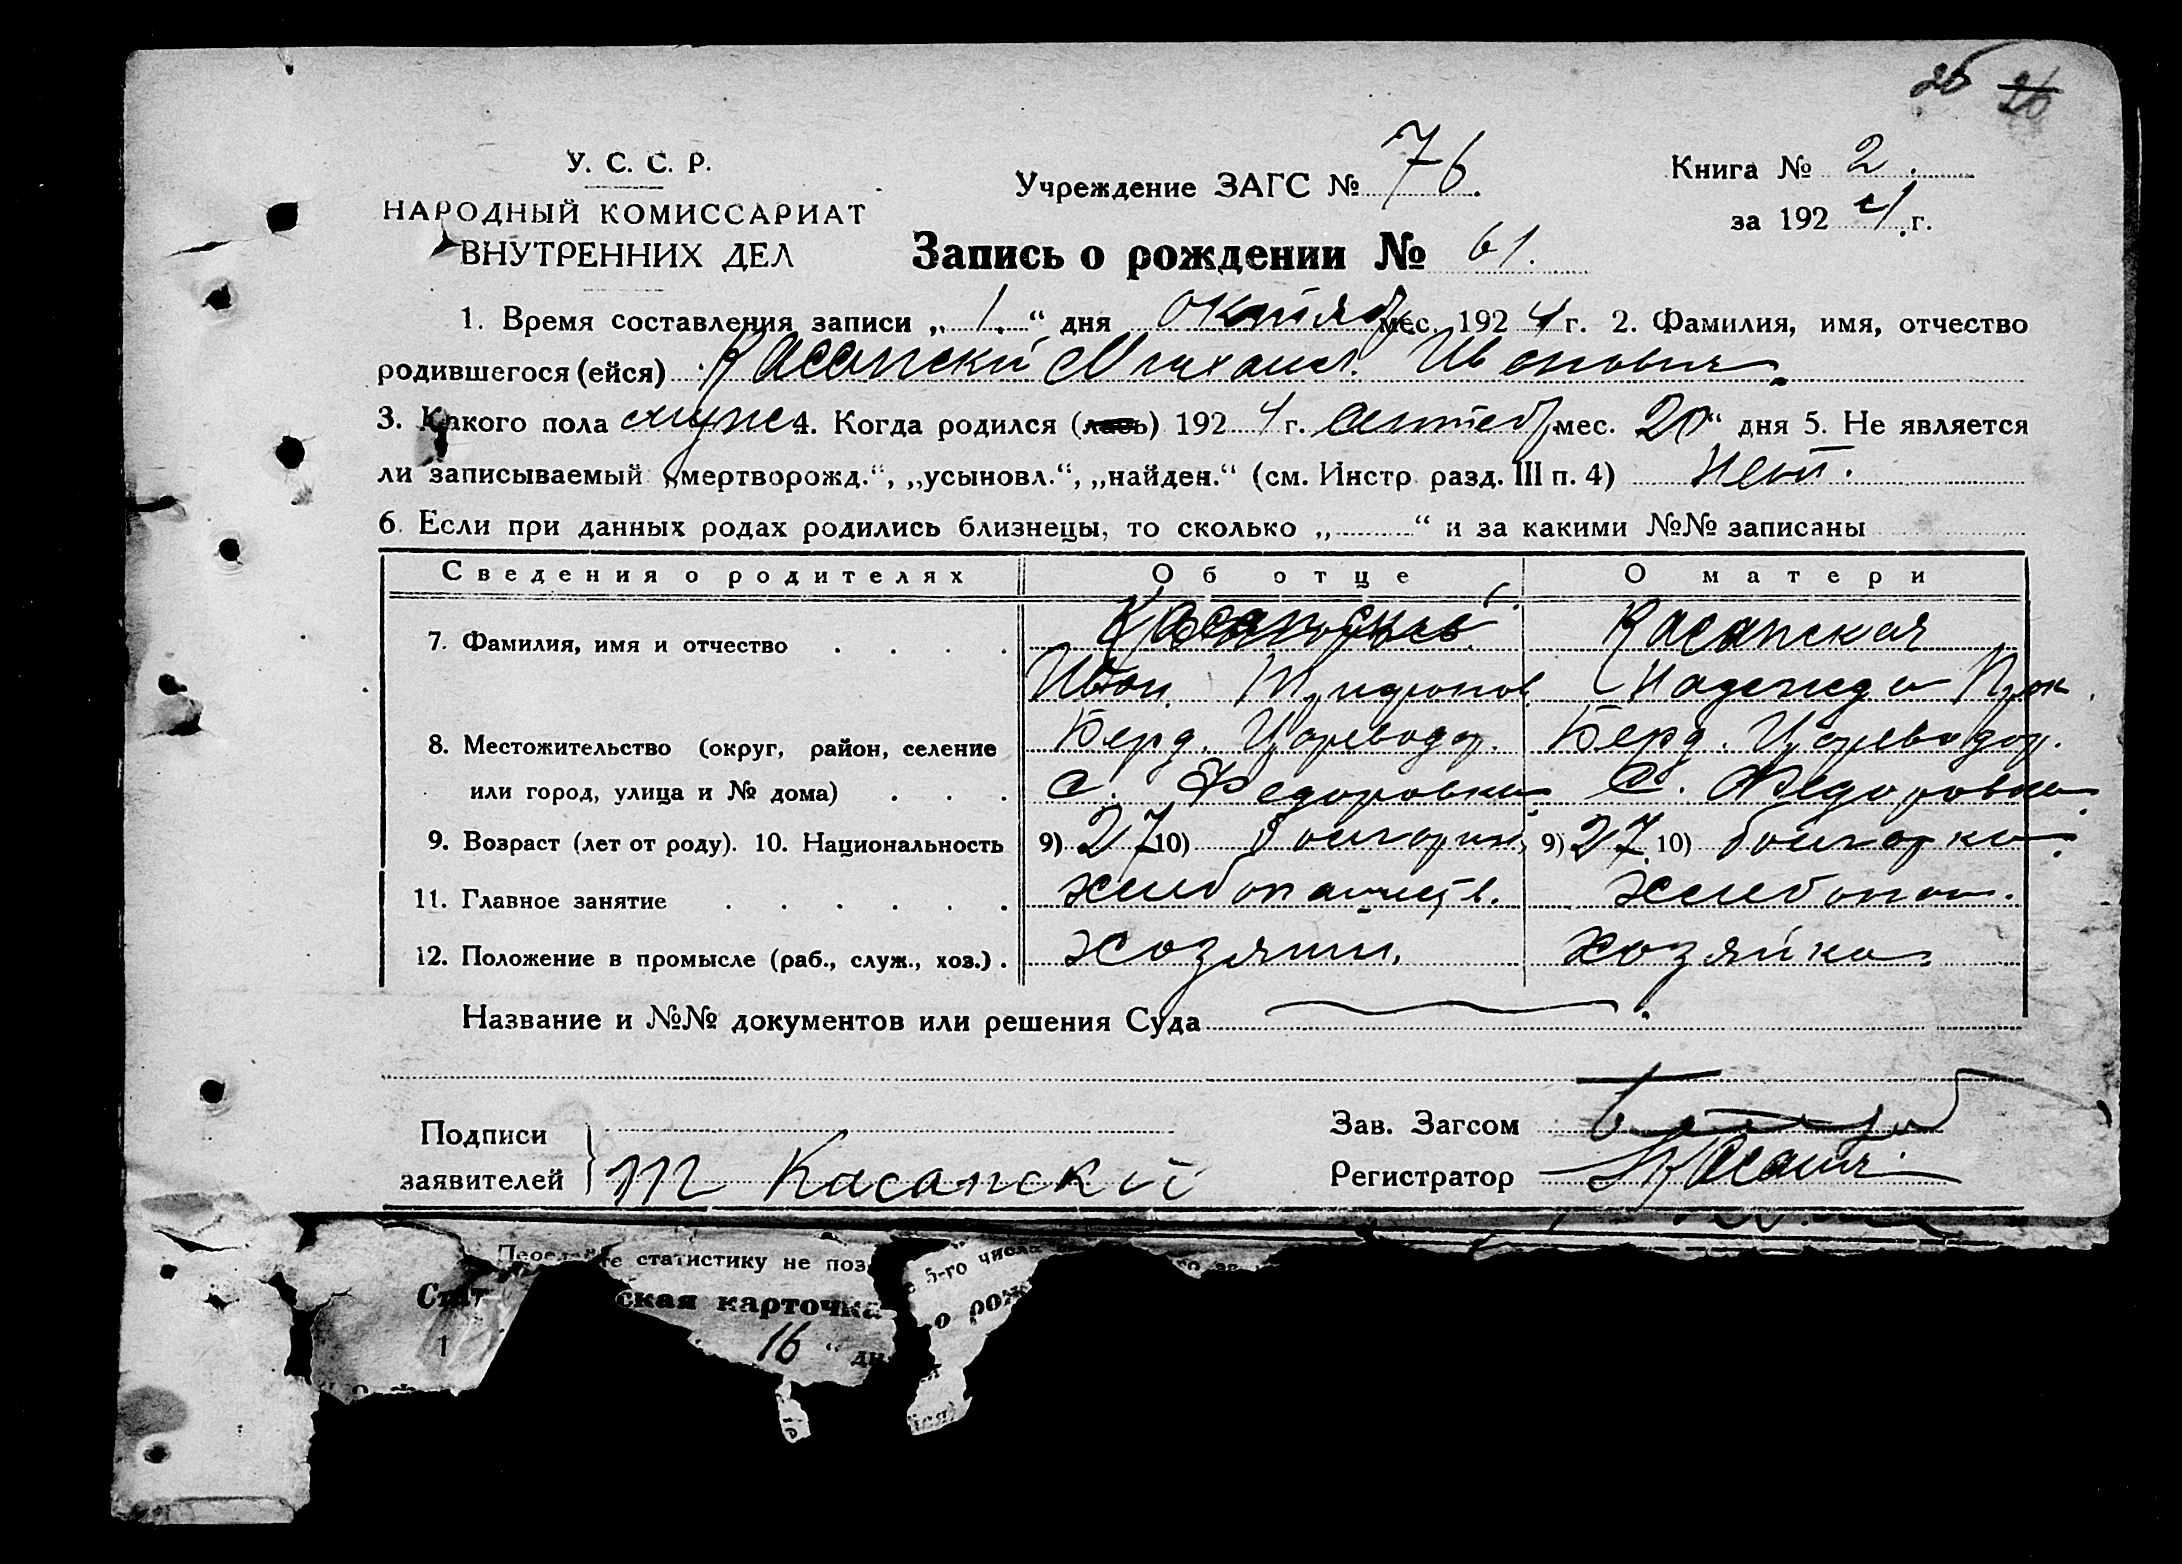 26 26
У. С. С. Р.
НАРОДНЫЙ КОМИССАРИАТ
ВНУТРЕННИХ ДЕЛ
Учреждение ЗАГС № 76.
Книга № 2.
за 1924 г.
Запись о рождении № 61.
1. Время составления записи „ 1. “ дня октяб мес. 1924 г. 2. Фамилия, имя, отчество
родившегося (ейся) Касапский Михаил Иванович.
3. Какого пола мужс 4. Когда родился (лась) 1924 г. сентеб мес. 20 “ дня 5. Не является
ли записываемый „мертворожд.“, „усыновл.“, „найден.“ (см. Инстр. разд. III п. 4) нет.
6. Если при данных родах родились близнецы, то сколько „ “ и за какими №№ записаны
Сведения о родителях Об отце О матери
7. Фамилия, имя и отчество Касапская
Иван Надежда Прок.
8. Местожительство (округ, район, селение Берд. Цареводар. Берд. Цареводар.
или город, улица и № дома) с. Федоровка с. Федоровка.
9. Возраст (лет от роду). 10. Национальность 9) 27 10) болгарин, 9) 27 10) болгарка.
11. Главное занятие хлебопашеств. хлебопаш.
12. Положение в промысле (раб., служ., хоз.) хозяин. хозяйка.
Название и №№ документов или решения Суда
Подписи
заявителей Касапский
Зав. Загсом
Регистратор
статистику не поз
е 5-го числа
Стат ская карточка о рож
1 16 “ дн